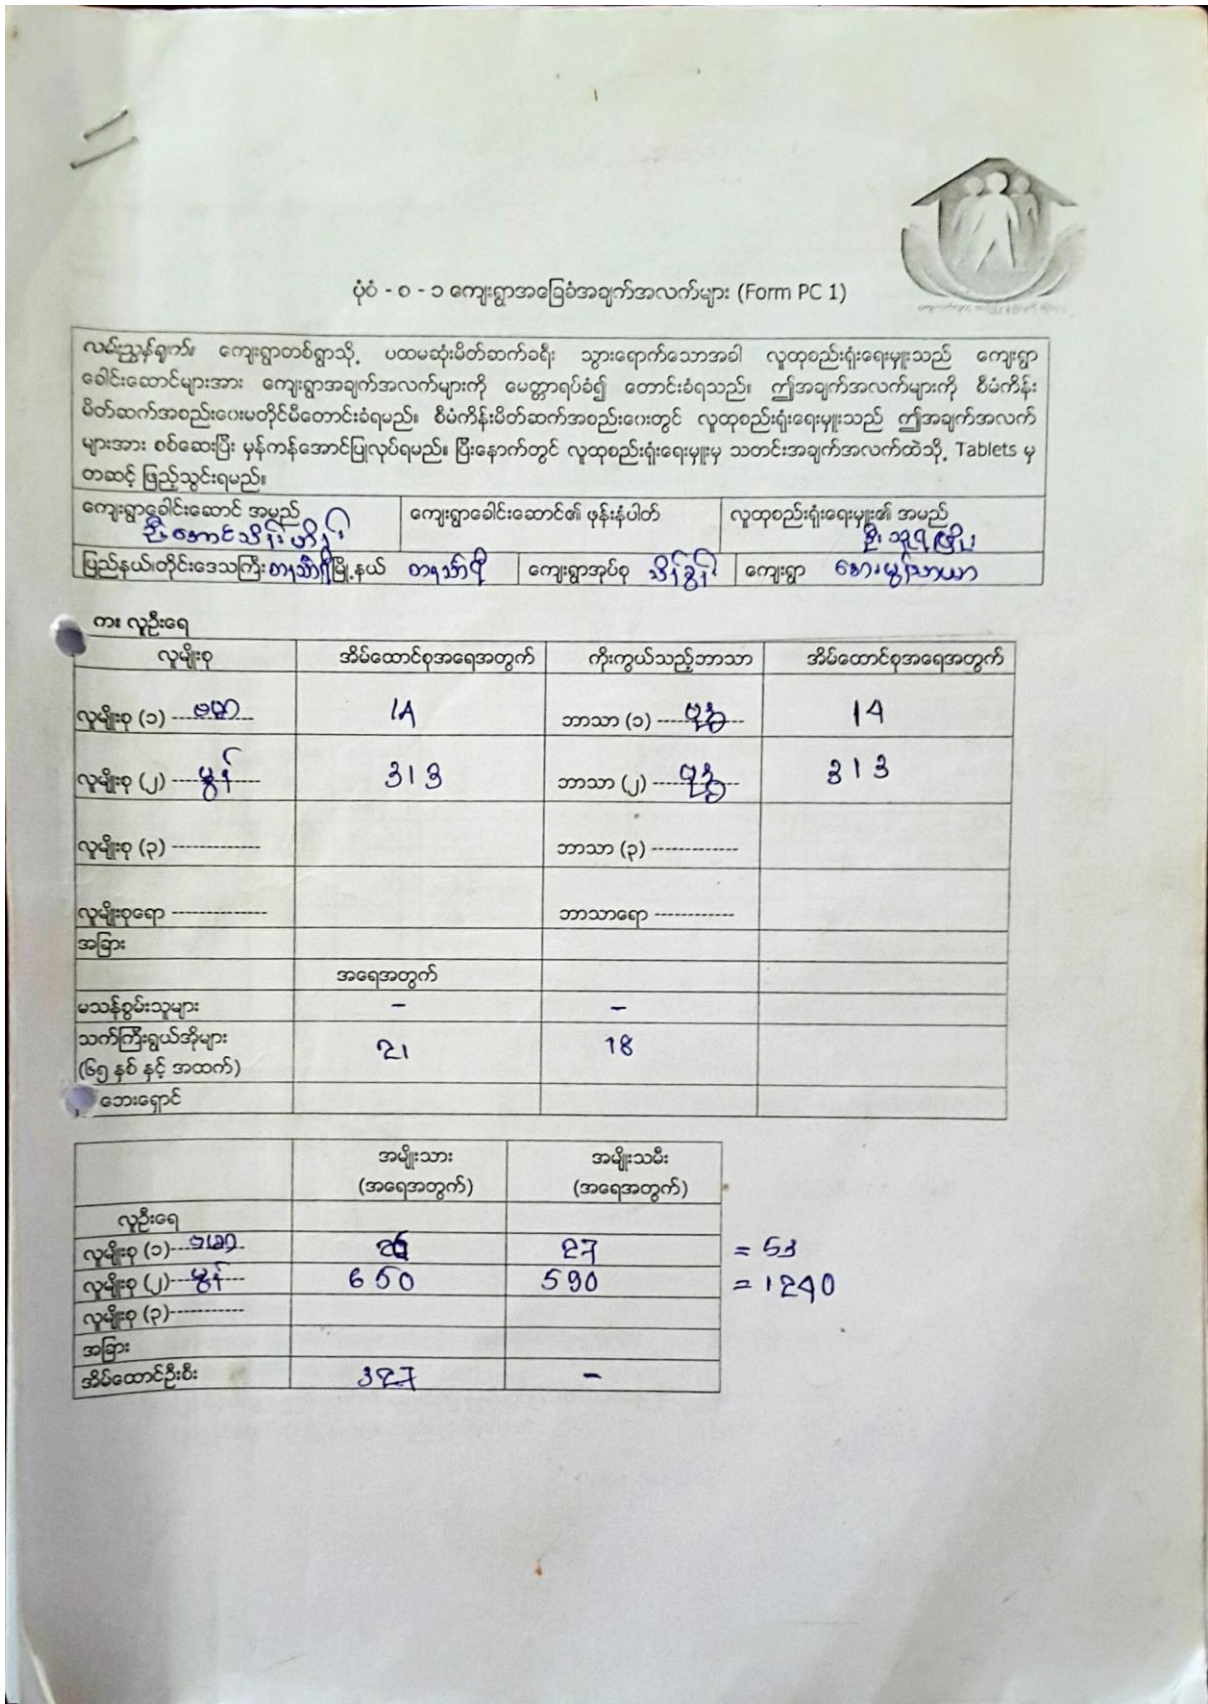 ပုံစံ - စ - ၁ ကျေးရွာအခြေခံအချက်အလက်များ (Form PC 1)
လမ်းညွှန်ချက်။ ကျေးရွာတစ်ရွာသို့ ပထမဆုံးမိတ်ဆက်ခရီး သွားရောက်သောအခါ လူထုစည်းရုံးရေးမှူးသည် ကျေးရွာ
ခေါင်းဆောင်များအား ကျေးရွာအချက်အလက်များကို မေတ္တာရပ်ခံ၍ တောင်းခံရသည်။ ဤအချက်အလက်များကို စီမံကိန်း
မိတ်ဆက်အစည်းဝေးမတိုင်မီတောင်းခံရမည်။ စီမံကိန်းမိတ်ဆက်အစည်းဝေးတွင် လူထုစည်းရုံးရေးမှူးသည် ဤအချက်အလက်
များအား စစ်ဆေးပြီး မှန်ကန်အောင်ပြုလုပ်ရမည်။ ပြီးနောက်တွင် လူထုစည်းရုံးရေးမှူးမှ သတင်းအချက်အလက်ထဲသို့ Tablets မှ
တဆင့် ဖြည့်သွင်းရမည်။
ကျေးရွာခေါင်းဆောင် အမည် ကျေးရွာခေါင်းဆောင်၏ ဖုန်းနံပါတ် လူထုစည်းရုံးရေးမှူး၏ အမည်
ဦးအောင်သိန်းဟိန်း ဦး
ပြည်နယ်၊တိုင်းဒေသကြီး တနင်္သာရီ မြို့နယ် တနင်္သာရီ ကျေးရွာအုပ်စု သိန်ခွန်း ကျေးရွာ
က။ လူဦးရေ
လူမျိုးစု အိမ်ထောင်စုအရေအတွက် ကိုးကွယ်သည့်ဘာသာ အိမ်ထောင်စုအရေအတွက်
လူမျိုးစု (၁) ---ဗမာ--- 14 ဘာသာ (၁) ---ဗုဒ္ဓ--- 14
လူမျိုးစု (၂) ---မွန်--- 313 ဘာသာ (၂) ---ဗုဒ္ဓ--- 313
လူမျိုးစု (၃) ------------- ဘာသာ (၃) -------------
လူမျိုးစုရော -------------- ဘာသာရော ------------
အခြား
အရေအတွက်
မသန်စွမ်းသူများ - -
သက်ကြီးရွယ်အိုများ 21 18
(၆၅ နှစ် နှင့် အထက်)
ဘေးရှောင်
အမျိုးသား အမျိုးသမီး
(အရေအတွက်) (အရေအတွက်)
လူဦးရေ
လူမျိုးစု (၁)---ဗမာ--- 26 27 = 53
လူမျိုးစု (၂)---မွန်--- 650 590 = 1240
လူမျိုးစု (၃)-----------
အခြား
အိမ်ထောင်ဦးစီး 327 -